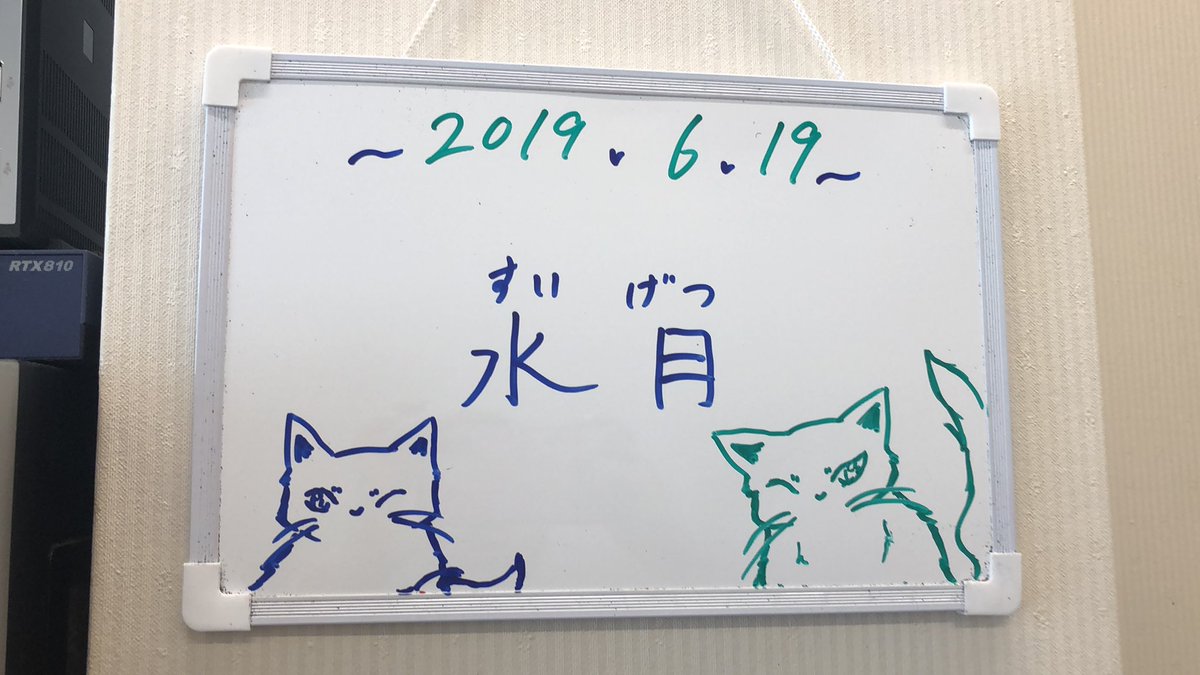 ~2019.6.19~
RTX810
すい げつ
水 月